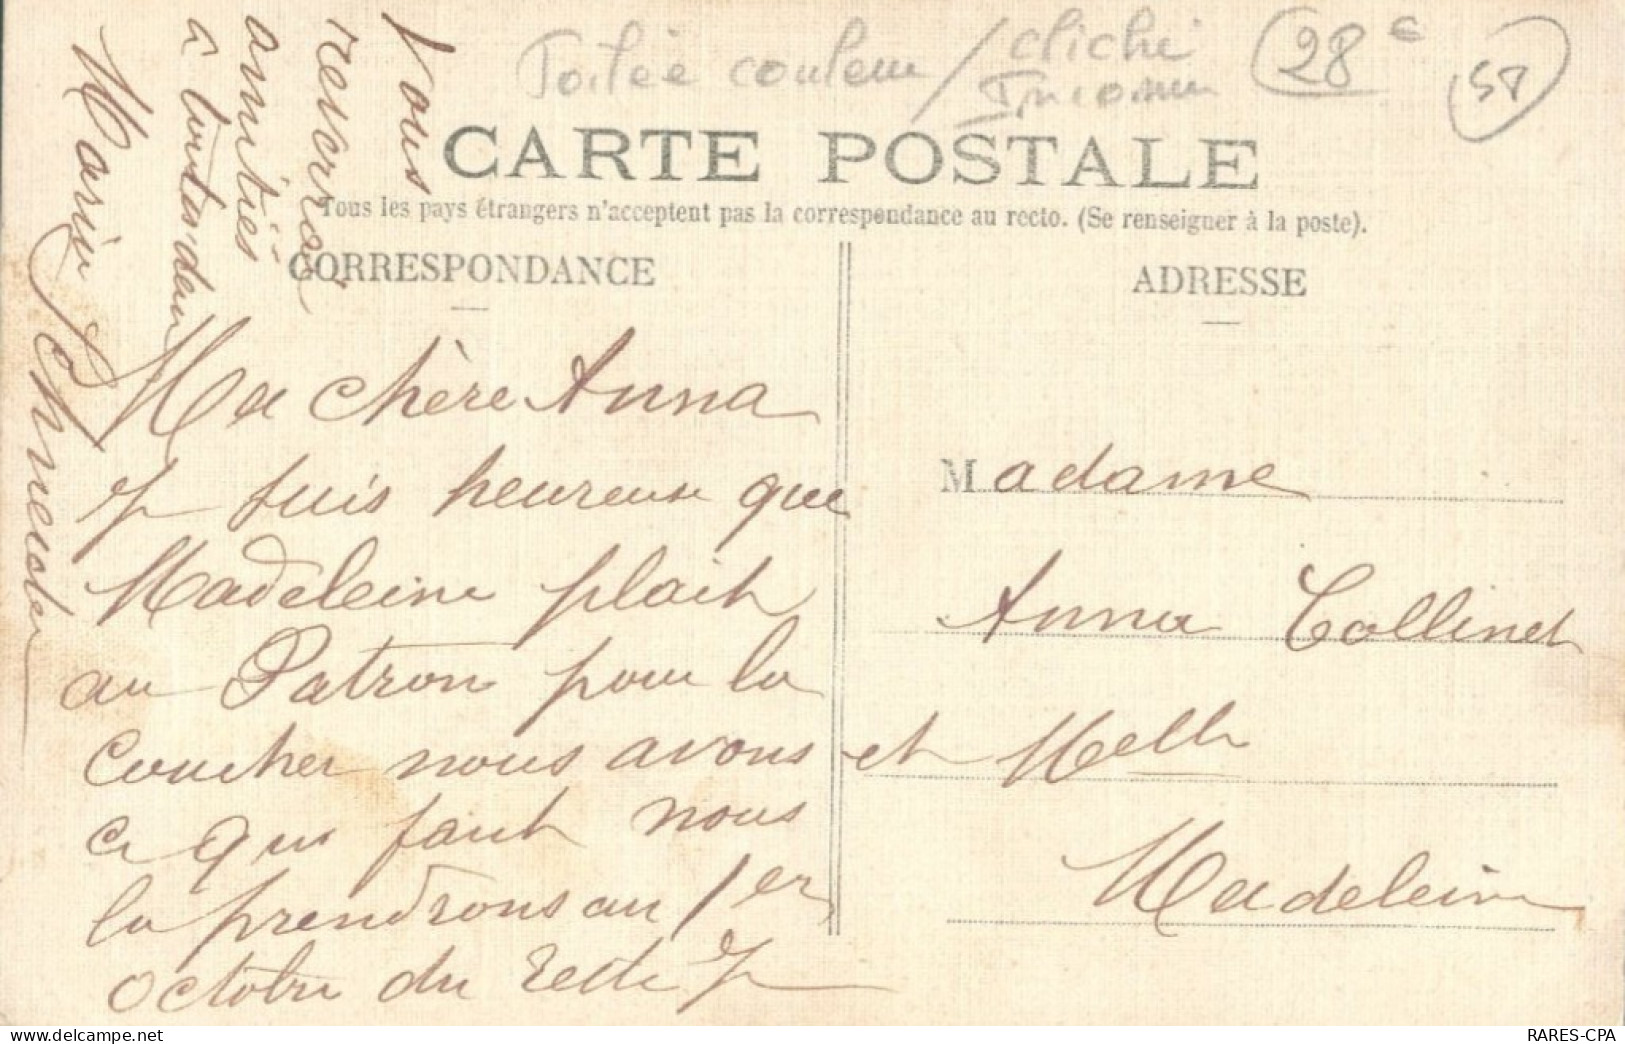 Toilée couleur / cliché
Inconnu
28 €
58
CARTE POSTALE
Tous les pays étrangers n'acceptent pas la correspondance au recto. (Se renseigner à la poste).
CORRESPONDANCE
ADRESSE
Ma chère Anna
Je suis heureuse que
Madeleine plait
au Patron pour la
coucher nous avons
ce qui faut nous
la prendrons au 1er
Octobre du reste je
Vous
reverrai
amitiés
à toutes deux
Maria
Madame
Anna Collinet
et Melle
Madeleine
RARES-CPA